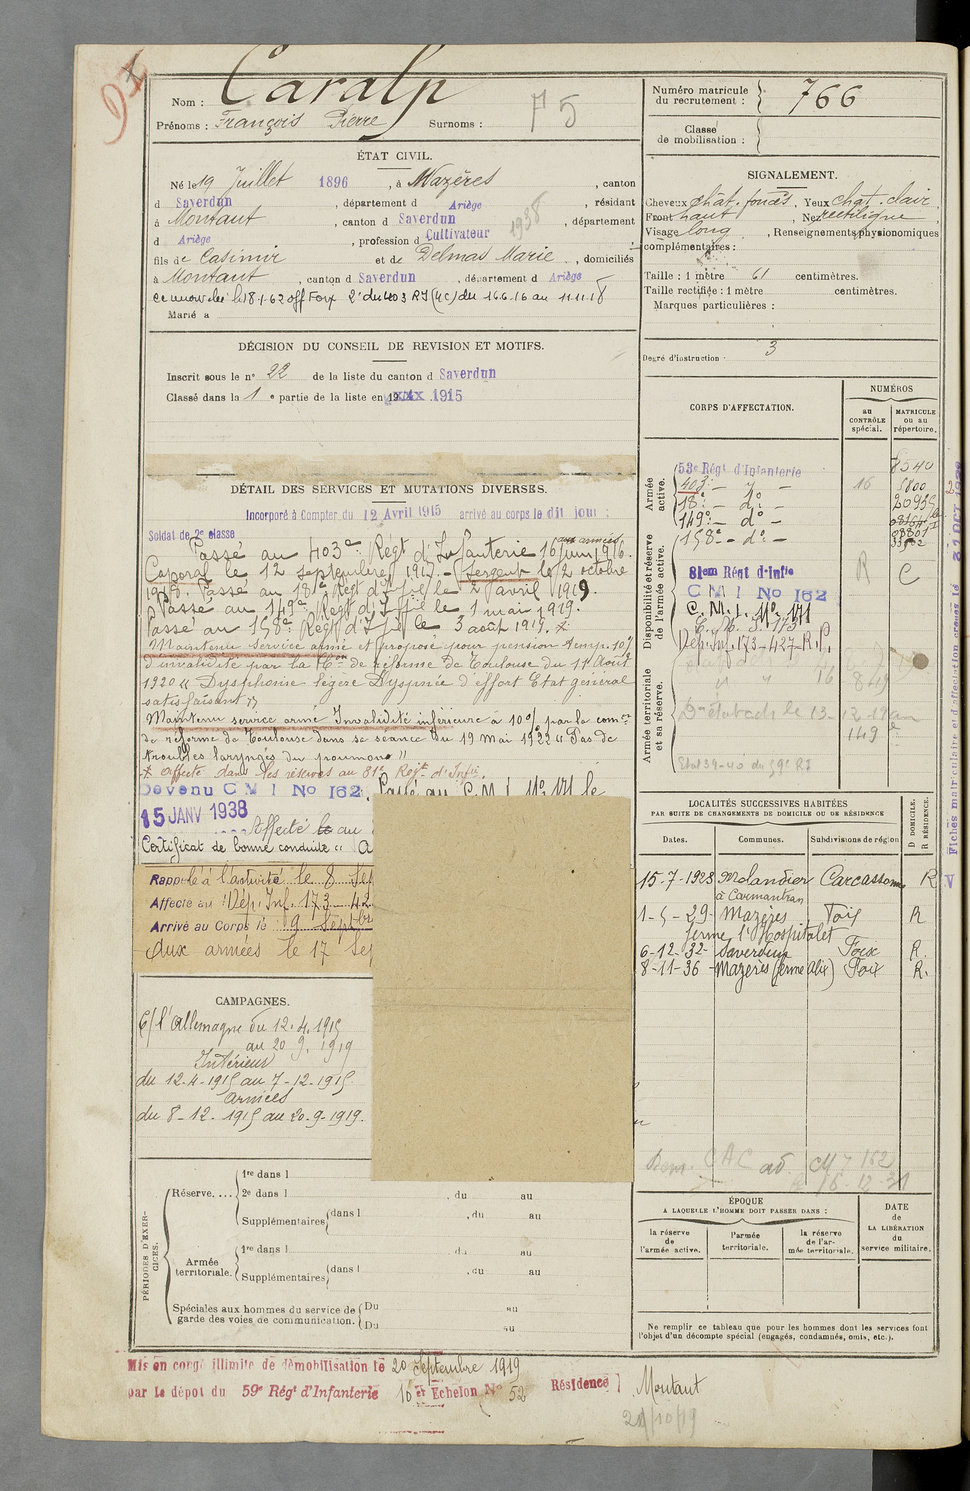 Nom : Caralp
Prénoms : François Pierre Surnoms :
75
ÉTAT CIVIL.
Né le 19 Juillet 1896, à Mazères, canton
d Saverdun, département d Ariège, résidant
à Montaut, canton d Saverdun, département
d Ariège, profession d Cultivateur
1938
fils de Casimir et de Delmas Marie, domiciliés
à Montaut, canton d Saverdun, département d Ariège
le 18-1-62 off Foix 2e du 403 RI (4C) du 16.6.16 au 11.11.18
Marié à
DÉCISION DU CONSEIL DE REVISION ET MOTIFS.
Inscrit sous le n° 22 de la liste du canton d Saverdun
Classé dans la 1e partie de la liste en 1915
DÉTAIL DES SERVICES ET MUTATIONS DIVERSES.
Incorporé à Compter du 12 Avril 1915 arrivé au corps le dit jour :
Soldat de 2e classe
aux armées
Passé au 403e Régt d'Infanterie 16 juin 1916.
Caporal le 12 septembre 1917. - Sergent le 2 octobre
1918. Passé au 18e Régt d'Iie le 2 avril 1919.
Passé au 149e Régt d'Iie le 1 mai 1919.
Passé au 158e Régt d'Iie le 3 août 1919.
Maintenu service armé et proposé pour pension temp. 10%
d'invalidité par la Con de réforme de Toulouse du 11 Août
1920 " Dysphonie légère Dyspnée d'effort Etat général
satisfaisant "
Maintenu service armé Invalidité inférieure à 10% par la comon
de réforme de Toulouse dans sa séance du 19 Mai 1922 " Pas de
troubles laryngés du poumons "
Affecté dans les réserves au 81e Régt d'Infie.
Devenu C M I No 162. Passé au C.M.I. No 171 le
15 JANV 1938
Affecté le au
Certificat de bonne conduite " A
Rappelé à l'activité le 8 Sep
Affecté au Dép. Inf. 173 - 42
Arrivé au Corps le 9 Septbre
Aux armées le 17 Sep
CAMPAGNES.
C/ l'Allemagne du 12.4.1915
au 20 9. 1919
Intérieur
du 12-4-1915 au 7-12-1915
Armées
du 8-12-1915 au 20-9-1919.
PÉRIODES D'EXERCICES.
Réserve....
1re dans l
2e dans l , du au
Supplémentaires dans l , du au
Armée territoriale.
1re dans l , du au
Supplémentaires dans l , du au
Spéciales aux hommes du service de garde des voies de communication.
Du au
Du au
Mis en congé illimité de démobilisation le 20 Septembre 1919
par le dépot du 59e Régt d'Infanterie 16 er Echelon N° 52 Résidence Montaut
21/10/19
Numéro matricule du recrutement : 766
Classe de mobilisation :
SIGNALEMENT.
Cheveux chât. foncés, Yeux chat. clair
Front haut, Nez rectiligne
Visage long, Renseignements physionomiques
complémentaires :
Taille : 1 mètre 61 centimètres.
Taille rectifiée : 1 mètre centimètres.
Marques particulières :
Degré d'instruction : 3
CORPS D'AFFECTATION.
NUMÉROS
au CONTRÔLE spécial.
MATRICULE ou au répertoire.
Armée active.
53e Régt d'Infanterie 8540
403e - d° - 16 5800
18e - d° -
149e - d° -
158e - d° -
Disponibilité et réserve de l'armée active.
81em Régt d'Infie R C
C M I No 162
C. M. I. No 171
Dép. Inf. 173-427-R.P.
Armée territoriale et sa réserve.
149
Etat 39-40 du 59e RI
Fiches matriculaire et d'affectation créées le 31 OCT
LOCALITÉS SUCCESSIVES HABITÉES
PAR SUITE DE CHANGEMENTS DE DOMICILE OU DE RÉSIDENCE
Dates. Communes. Subdivisions de région D DOMICILE. R RÉSIDENCE.
15-7-1928 Molandier Carcassonne R
à Carmantran
1-5-29 Mazères Foix R
ferme l'Hospitalet
6-12-32 Saverdun Foix R.
8-11-36 Mazères (ferme Alix) Foix R.
ÉPOQUE
A LAQUELLE L'HOMME DOIT PASSER DANS :
la réserve de l'armée active.
l'armée territoriale.
la réserve de l'armée territoriale.
DATE de LA LIBÉRATION du service militaire.
Ne remplir ce tableau que pour les hommes dont les services font
l'objet d'un décompte spécial (engagés, condamnés, omis, etc.).